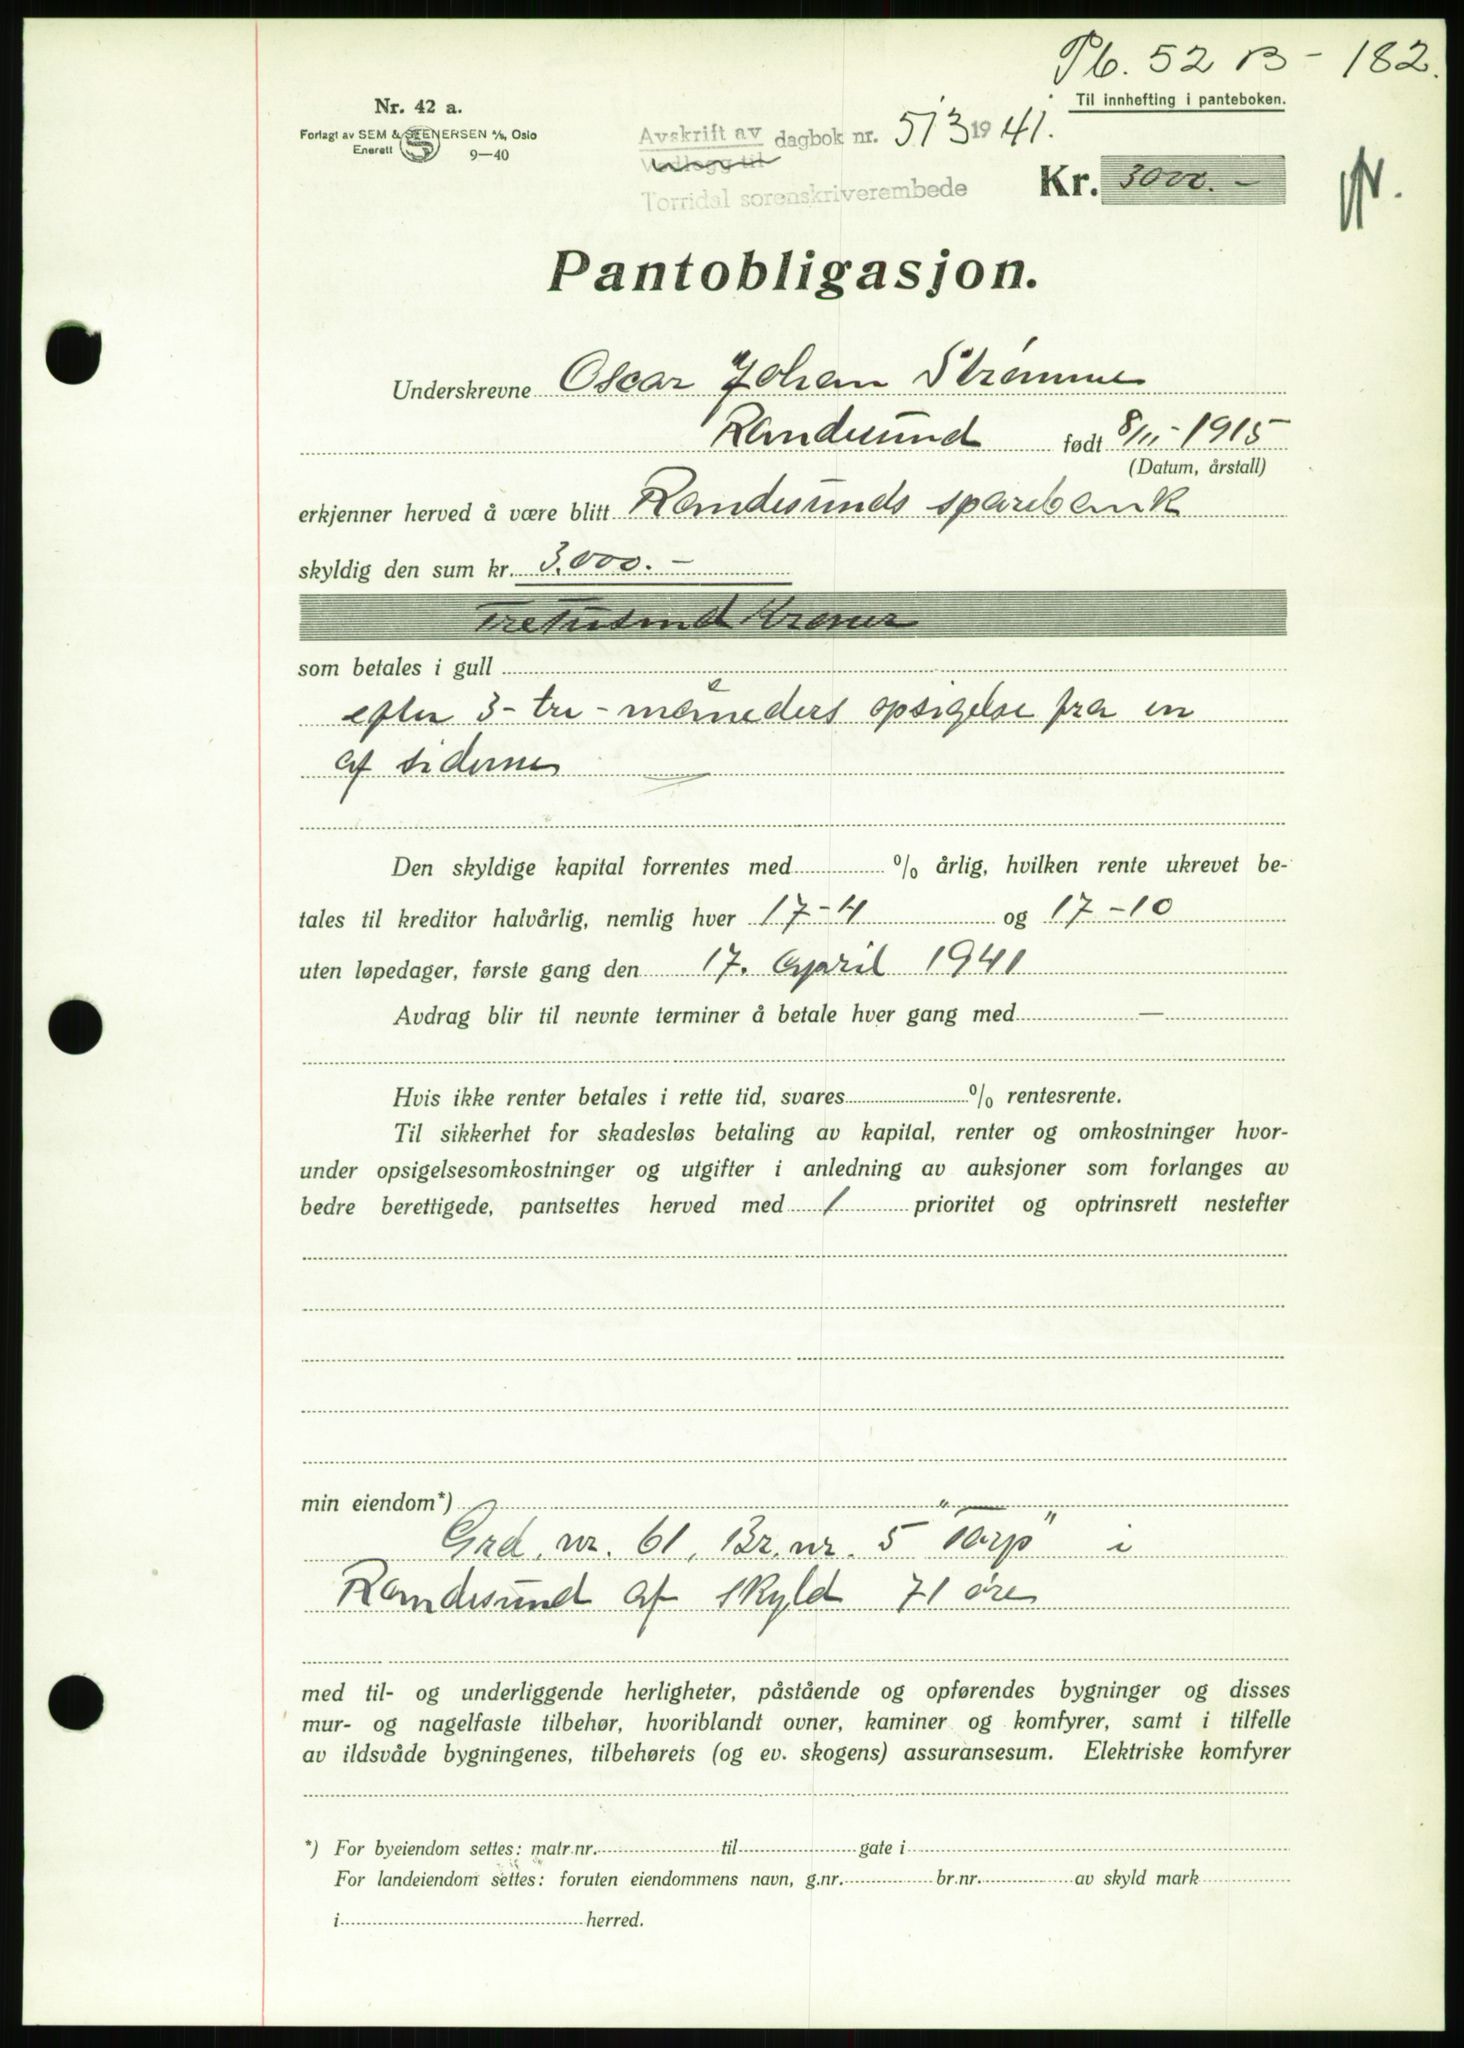 Pb. 52 B - 182.
Til innhefting i panteboken.
Nr. 42 a.
Forlagt av SEM & STENERSEN A/S, Oslo
Enerett 9—40
Avskrift av dagbok nr. 513 1941.
Vedlegg til
Torridal sorenskriverembede
Kr. 3000.-
Pantobligasjon.
Underskrevne Oscar Johan Strømme
Randesund født 8/11-1915
(Datum, årstall)
erkjenner herved å være blitt Randesunds sparebank
skyldig den sum kr. 3.000.-
Tretusind Kroner
som betales i gull
efter 3- tre - måneders opsigelse fra en
af siderne
Den skyldige kapital forrentes med % årlig, hvilken rente ukrevet be-
tales til kreditor halvårlig, nemlig hver 17-4 og 17-10
uten løpedager, første gang den 17. April 1941
Avdrag blir til nevnte terminer å betale hver gang med —
Hvis ikke renter betales i rette tid, svares % rentesrente.
Til sikkerhet for skadesløs betaling av kapital, renter og omkostninger hvor-
under opsigelsesomkostninger og utgifter i anledning av auksjoner som forlanges av
bedre berettigede, pantsettes herved med 1 prioritet og optrinsrett nestefter
min eiendom*)
Grd. nr. 61, Br. nr. 5 "Tarp" i
Randesund af skyld 71 øre
med til- og underliggende herligheter, påstående og opførendes bygninger og disses
mur- og nagelfaste tilbehør, hvoriblandt ovner, kaminer og komfyrer, samt i tilfelle
av ildsvåde bygningenes, tilbehørets (og ev. skogens) assuransesum. Elektriske komfyrer
*) For byeiendom settes: matr.nr. til gate i
For landeiendom settes: foruten eiendommens navn, g.nr. br.nr. av skyld mark
i herred.